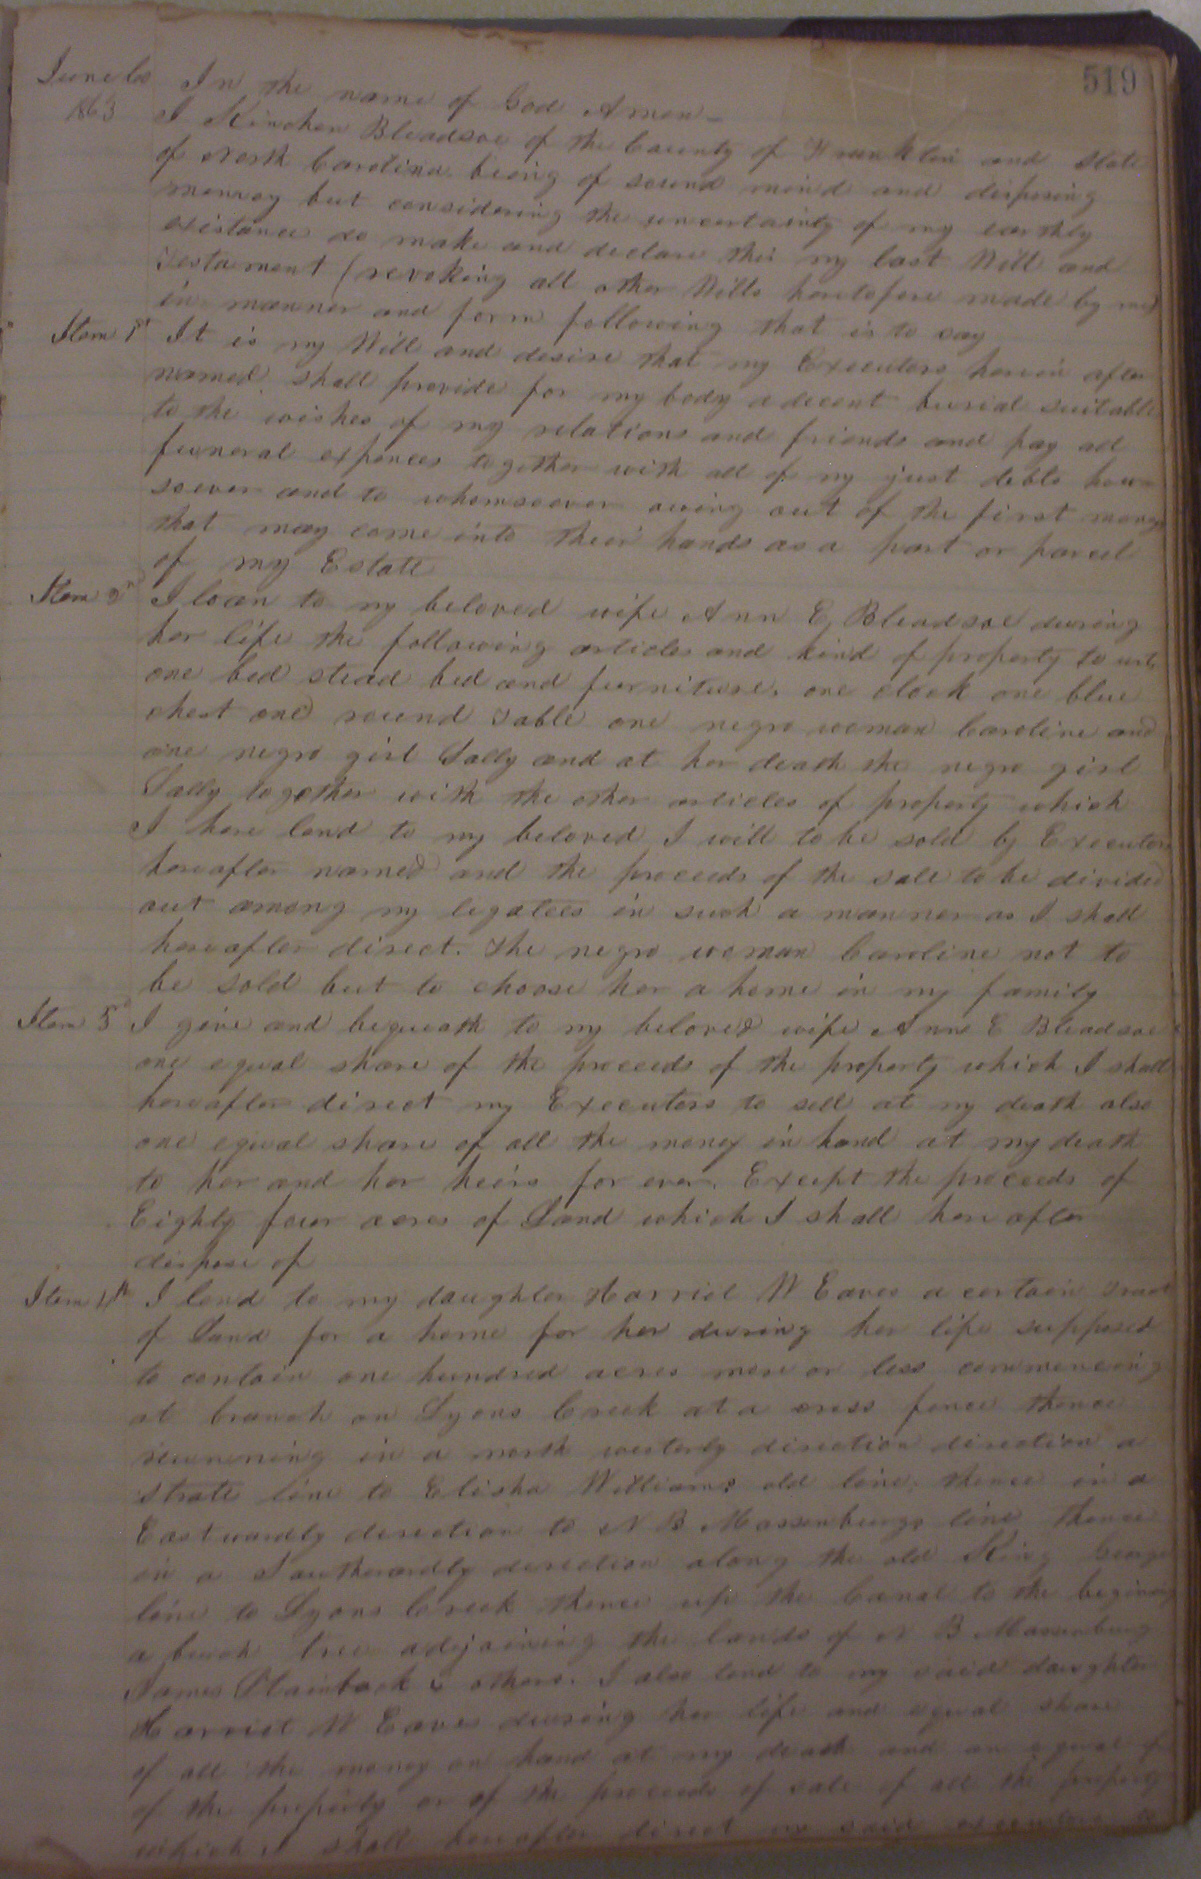 519
June Co In the name of God Amen
1863 I Kinchen Bleadsoe of the County of Franklin and State
of North Carolina being of sound mind and disposing
memroy but considering the uncertainty of my earthly
existance do make and declare this my last Will and
Testament (revoking all other Wills heretofore made by me)
in manner and form following that is to say
Item 1st It is my Will and desire that my Executors herein after
named shall provide for my body a decent burial suitable
to the wishes of my relations and friends and pay all
funeral expences together with all of my just debts how
soever and to whomsoever owing out of the first money
that may come into their hands as a part or parcel
of my Estate
Item 2d I loan to my beloved wife Ann E Bleadsoe during
her life the following articles and kind of property to wit,
one bed stead bed and furniture, one clock one blue
chest one round table one negro woman Caroline and
one negro girl Sally and at her death the negro girl
Sally together with the other articles of property which
I here lend to my beloved I will to be sold by Executors
hereafter named and the proceeds of the sale to be divided
out among my legatees in such a manner as I shall
hereafter direct. The negro woman Caroline not to
be sold but to choose her a home in my family
Item 3 I give and bequeath to my beloved wife Ann E Bleadsoe
one equal share of the proceeds of the property which I shall
hereafter direct my Executors to sell at my death also
one equal share of all the money in hand at my death
to her and her heirs for ever. Except the proceeds of
Eighty four acres of Land which I shall here after
dispose of
Item 4th I lend to my daughter Harriet W Eaves a certain Tract
of Land for a home for her during her life supposed
to contain one hundred acres more or less commencing
at branch on Lyons Creek at a cross fence thence
running in a north westerly direction direction a
strate line to Elisha Williams old line, thence in a
Eastwardly direction to N B Massenburgs line thence
in a Southwardly direction along the old King George
line to Lyons Creek thence up the Canal to the begining
a burch tree adjoining the lands of N B Massenburg
James Stainback & others. I also lend to my said daughter
Harriet W Eaves during her life and equal share
of all the money on hand at my death and an equal
of the property or of the proceeds of sale of all the property
which I shall hereafter direct my said executors to